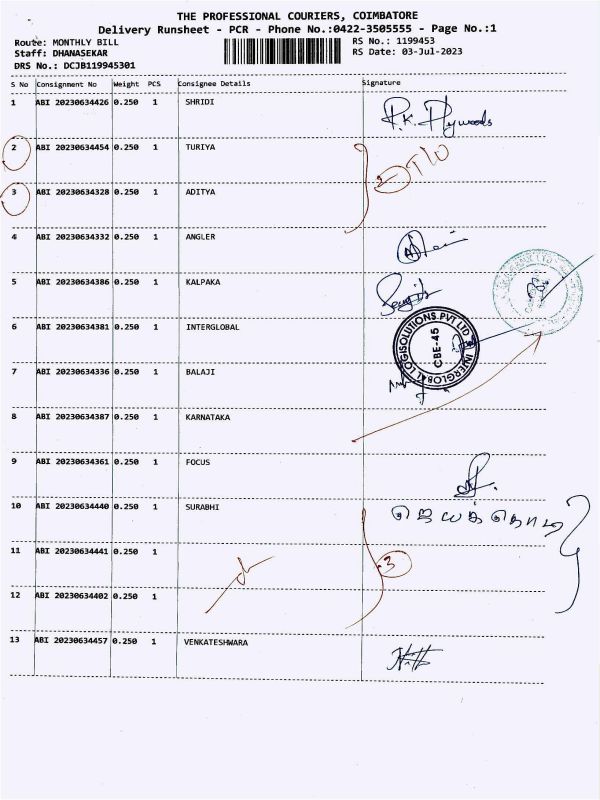 THE PROFESSIONAL COURIERS, COIMBATORE
Delivery Runsheet - PCR - Phone No.:0422-3505555 - Page No.:1
Route: MONTHLY BILL
RS No.: 1199453
Staff: DHANASEKAR
RS Date: 03-Jul-2023
DRS No.: DCJB119945301
S No Consignment No Weight PCS Consignee Details Signature
1 ABI 20230634426 0.250 1 SHRIDI
P.K. Plywoods
2 ABI 20230634454 0.250 1 TURIYA
3 ABI 20230634328 0.250 1 ADITYA
4 ABI 20230634332 0.250 1 ANGLER
5 ABI 20230634386 0.250 1 KALPAKA
6 ABI 20230634381 0.250 1 INTERGLOBAL
INTERGLOBAL LOGISOLUTIONS PVT LTD
CBE-45
7 ABI 20230634336 0.250 1 BALAJI
8 ABI 20230634387 0.250 1 KARNATAKA
9 ABI 20230634361 0.250 1 FOCUS
10 ABI 20230634440 0.250 1 SURABHI
11 ABI 20230634441 0.250 1
3
12 ABI 20230634402 0.250 1
13 ABI 20230634457 0.250 1 VENKATESHWARA